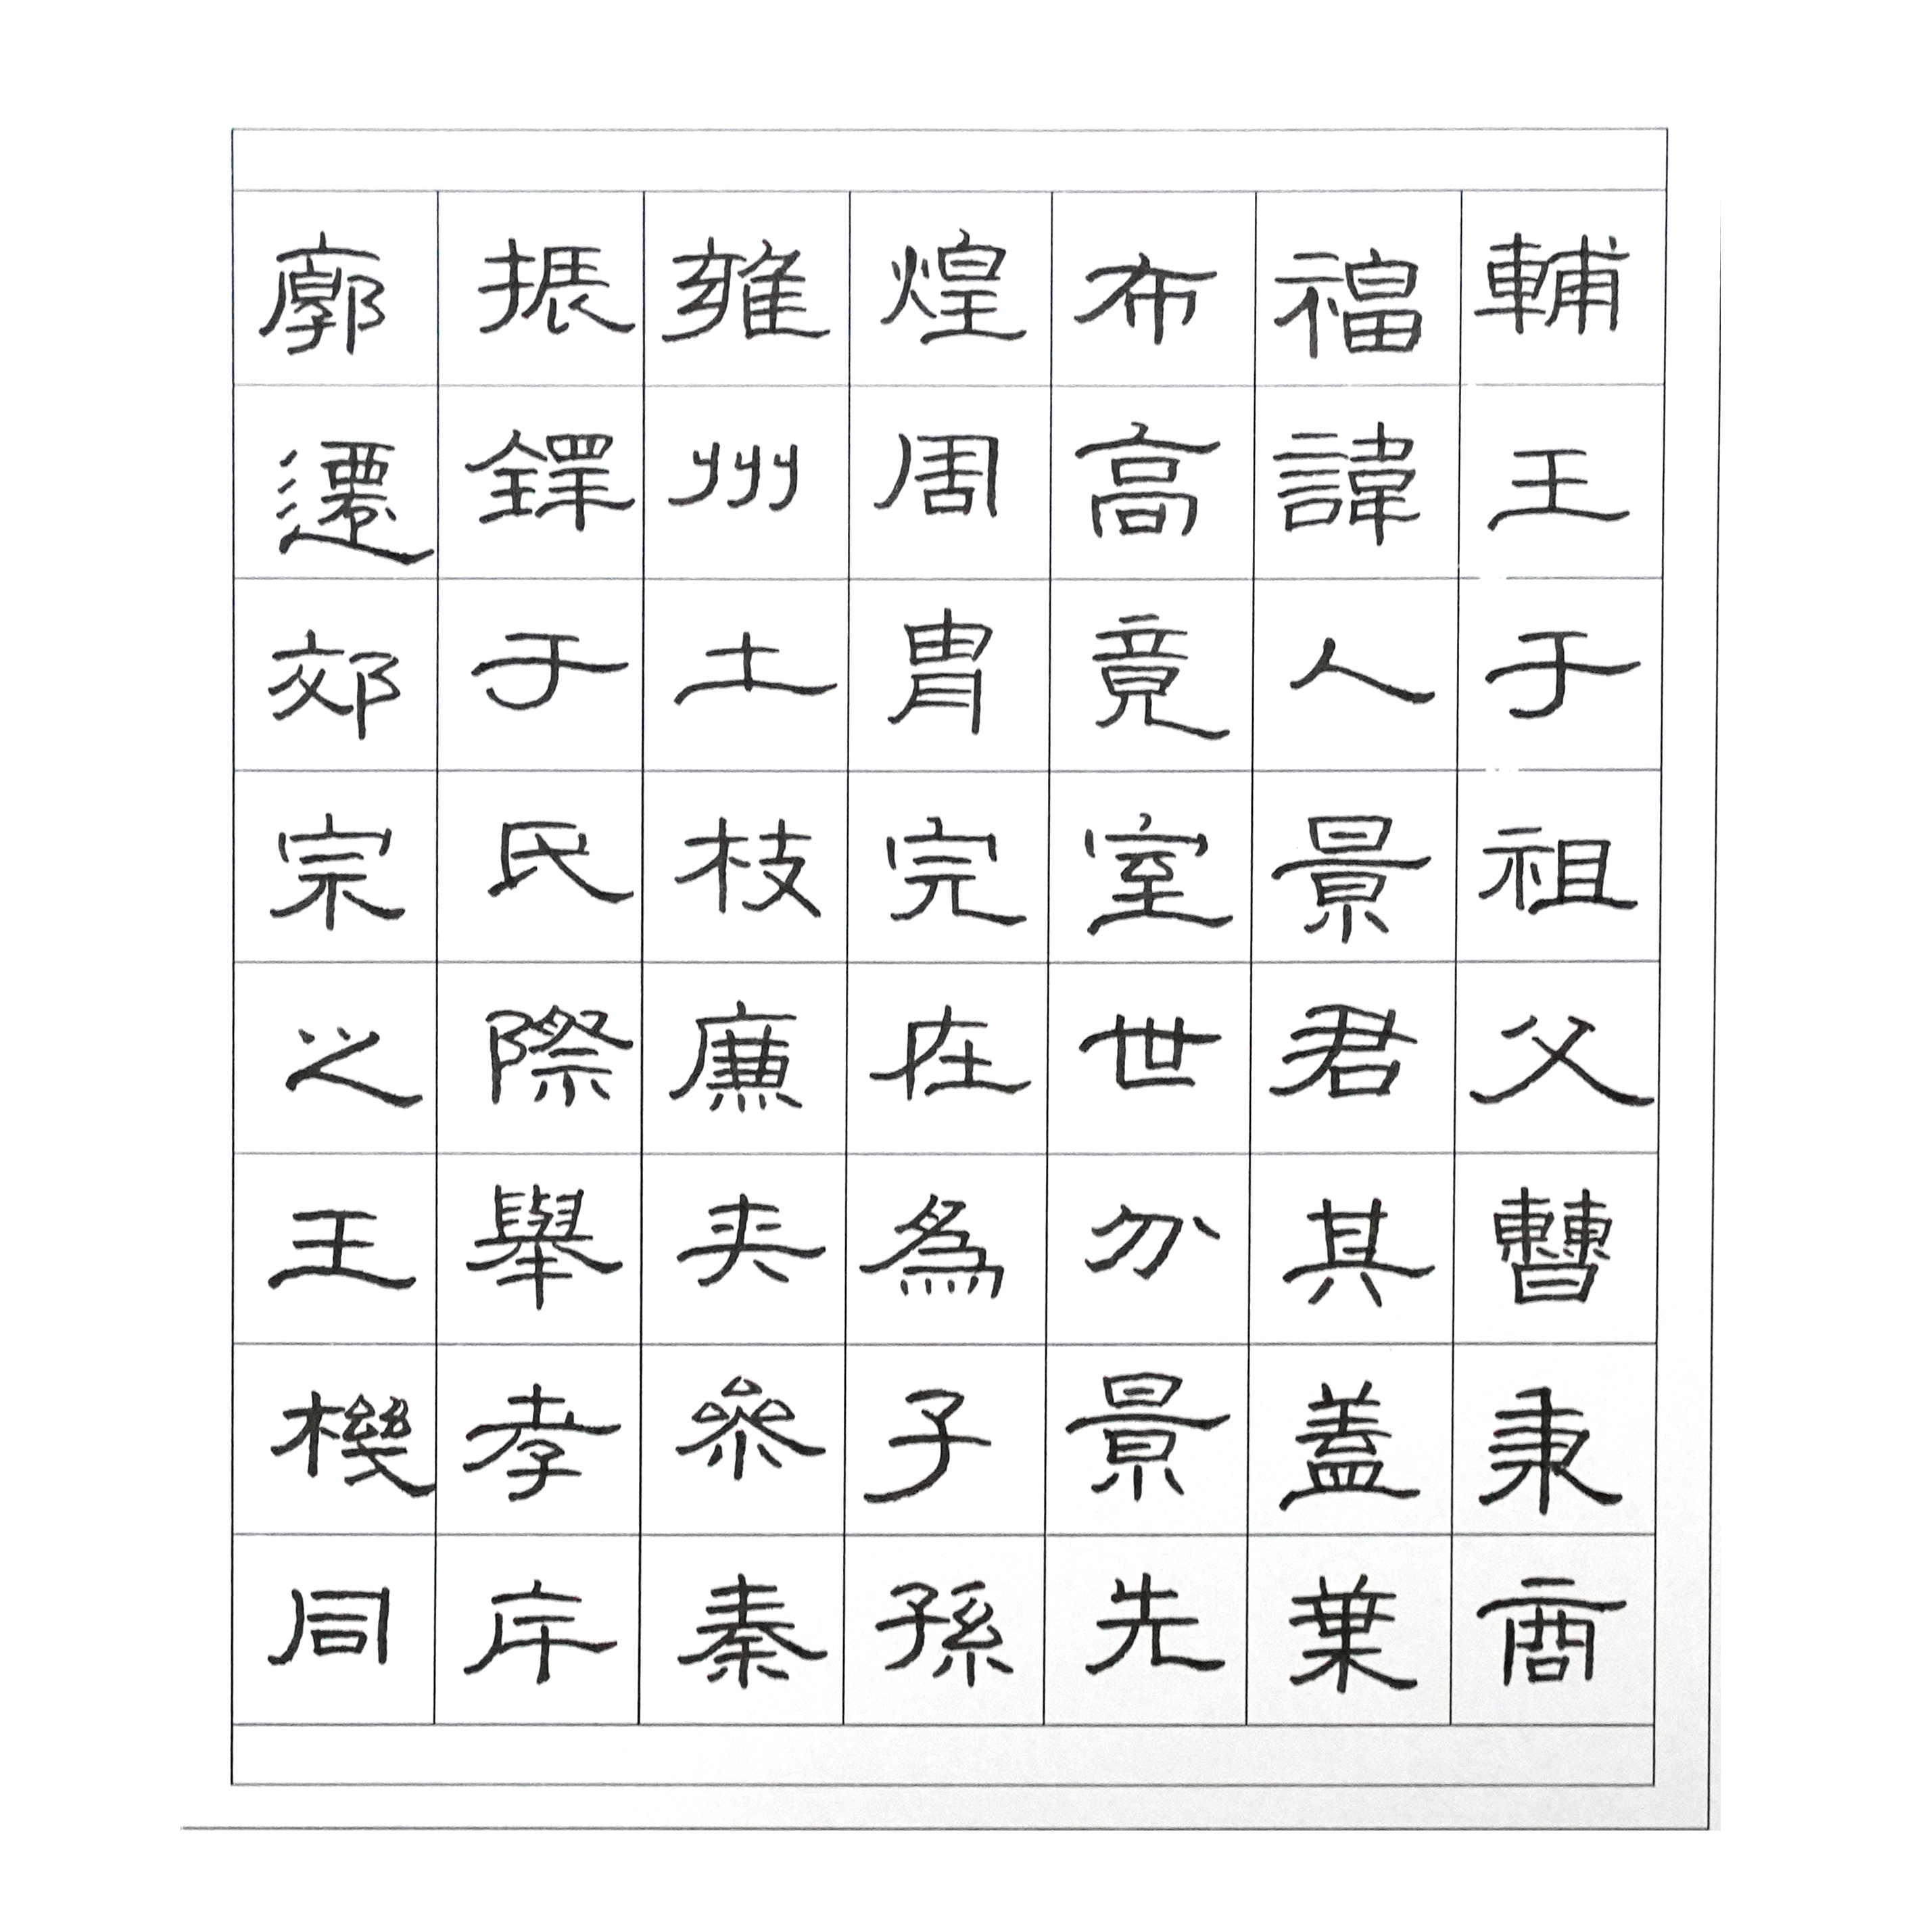 輔王于祖父曹秉商
福諱人景君其蓋葉
布高竟室世分景先
煌周胄完在爲子孫
雍州土枝廉夾參秦
振鐸于氏際舉孝斥
廓遷郊宗之王機同